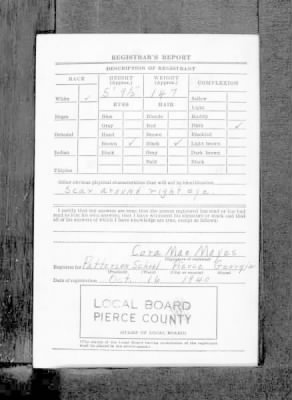 REGISTRAR'S REPORT
DESCRIPTION OF REGISTRANT
RACE HEIGHT (Approx.) WEIGHT (Approx.) COMPLEXION
5' 9½" 147
White ✓ Sallow
EYES HAIR Light
Negro Blue Blonde Ruddy
Gray Red Dark ✓
Oriental Hazel Brown Freckled
Brown ✓ Black ✓ Light brown
Indian Black Gray Dark brown
Bald Black
Filipino
Other obvious physical characteristics that will aid in identification
Scar around right eye
I certify that my answers are true; that the person registered has read or has had
read to him his own answers; that I have witnessed his signature or mark and that
all of his answers of which I have knowledge are true, except as follows:
Cora Mae Mayes
(Signature of registrar)
Registrar for Patterson School Pierce Georgia
(Precinct) (Ward) (City or county) (State)
Date of registration Oct. 16 1940
LOCAL BOARD
PIERCE COUNTY
(STAMP OF LOCAL BOARD)
(The stamp of the Local Board having jurisdiction of the registrant
shall be placed in the above space)